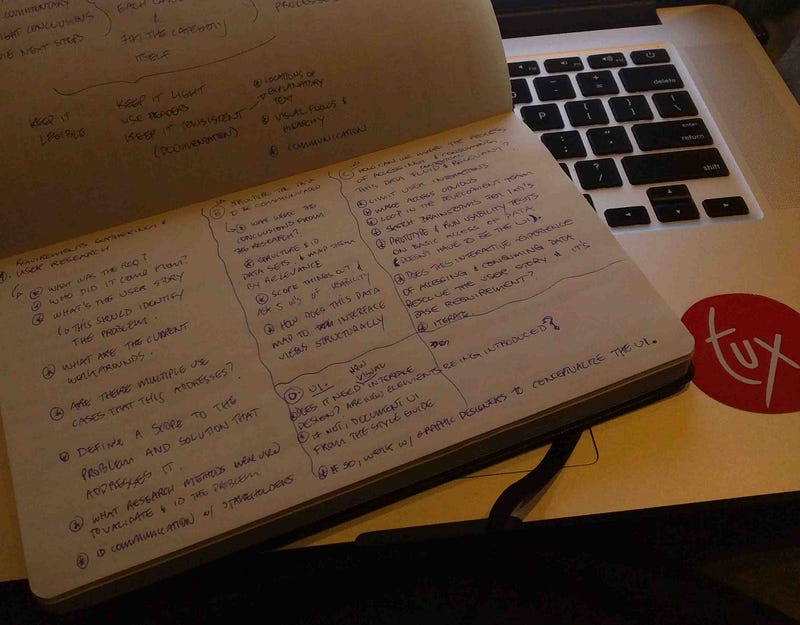 COMMENTARY
CONCLUSIONS
NEXT STEPS
EACH
&
FOR THE CATEGORY
ITSELF
KEEP IT
LEGIBLE
KEEP IT LIGHT
USE HEADERS
KEEP IT CONSISTENT
(DOCUMENTATION)
LOCATIONS OF
EXPLANATORY
TEXT
VISUAL FLOWS &
HIERARCHY
COMMUNICATION
REQUIREMENTS GATHERING &
USER RESEARCH
WHAT WAS THE REQ?
WHO DID IT COME FROM?
WHAT'S THE USER STORY
THIS SHOULD IDENTIFY
THE PROBLEM.
WHAT ARE THE CURRENT
WORKAROUNDS.
ARE THERE MULTIPLE USE
CASES THAT THIS ADDRESSES?
DEFINE A SCOPE TO THE
PROBLEM AND SOLUTION THAT
ADDRESSES IT.
WHAT RESEARCH METHODS WERE USED
TO VALIDATE & ID THE PROBLEM
ID COMMUNICATION W/ STAKEHOLDERS
B STRUCTURE THE DATA
TO BE COMMUNICATED
WHAT WERE THE
CONCLUSIONS FROM
RESEARCH?
STRUCTURE & ID
DATA SETS. & MAP THEM
BY RELEVANCE
SCOPE THINGS OUT &
ASK 5 W'S OF USABILITY
HOW DOES THIS DATA
MAP TO INTERFACE
VIEWS STRUCTURALLY
C HOW CAN WE MAKE THE ACCESS,
OF ACCESSING & CONSUMING
THIS DATA FLUID & RELEVANT?
LIMIT USER INTERACTIONS
MAKE ACCESS OBVIOUS
LOOP IN THE DEVELOPMENT TEAM
SKETCH BRAINSTORMS FOR
PROTOTYPE & RUN USABILITY TESTS
ON BASIC ACCESS OF DATA
(DOESN'T HAVE TO BE THE UI).
DOES THIS INTERACTIVE EXPERIENCE
OF ACCESSING & CONSUMING DATA
RESOLVE THE USER STORY & IT'S
BASE REQUIREMENT?
ITERATE
D UI.
DOES IT NEED INTERFACE
DESIGN? ARE NEW VISUAL ELEMENTS BEING INTRODUCED?
IF NOT, DOCUMENT UI
FROM THE STYLE GUIDE
IF SO, WORK W/ GRAPHIC DESIGNERS TO CONCEPTUALIZE THE UI.
delete
enter
return
shift
P
tux